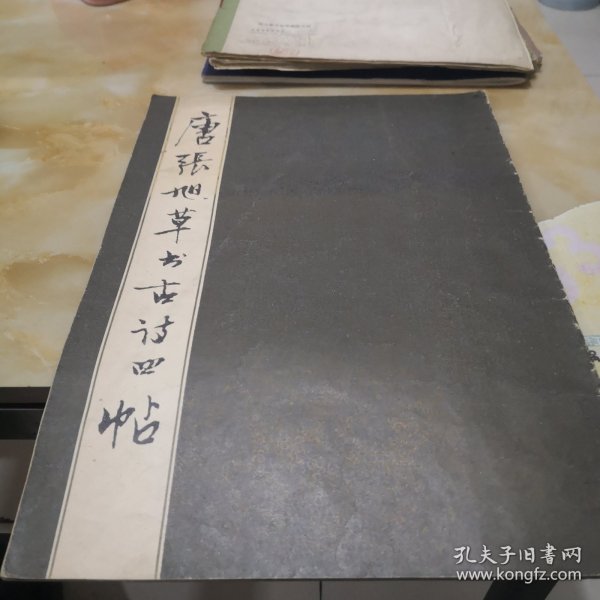 唐張旭草书古诗四帖
孔夫子旧书网
www.kongfz.com